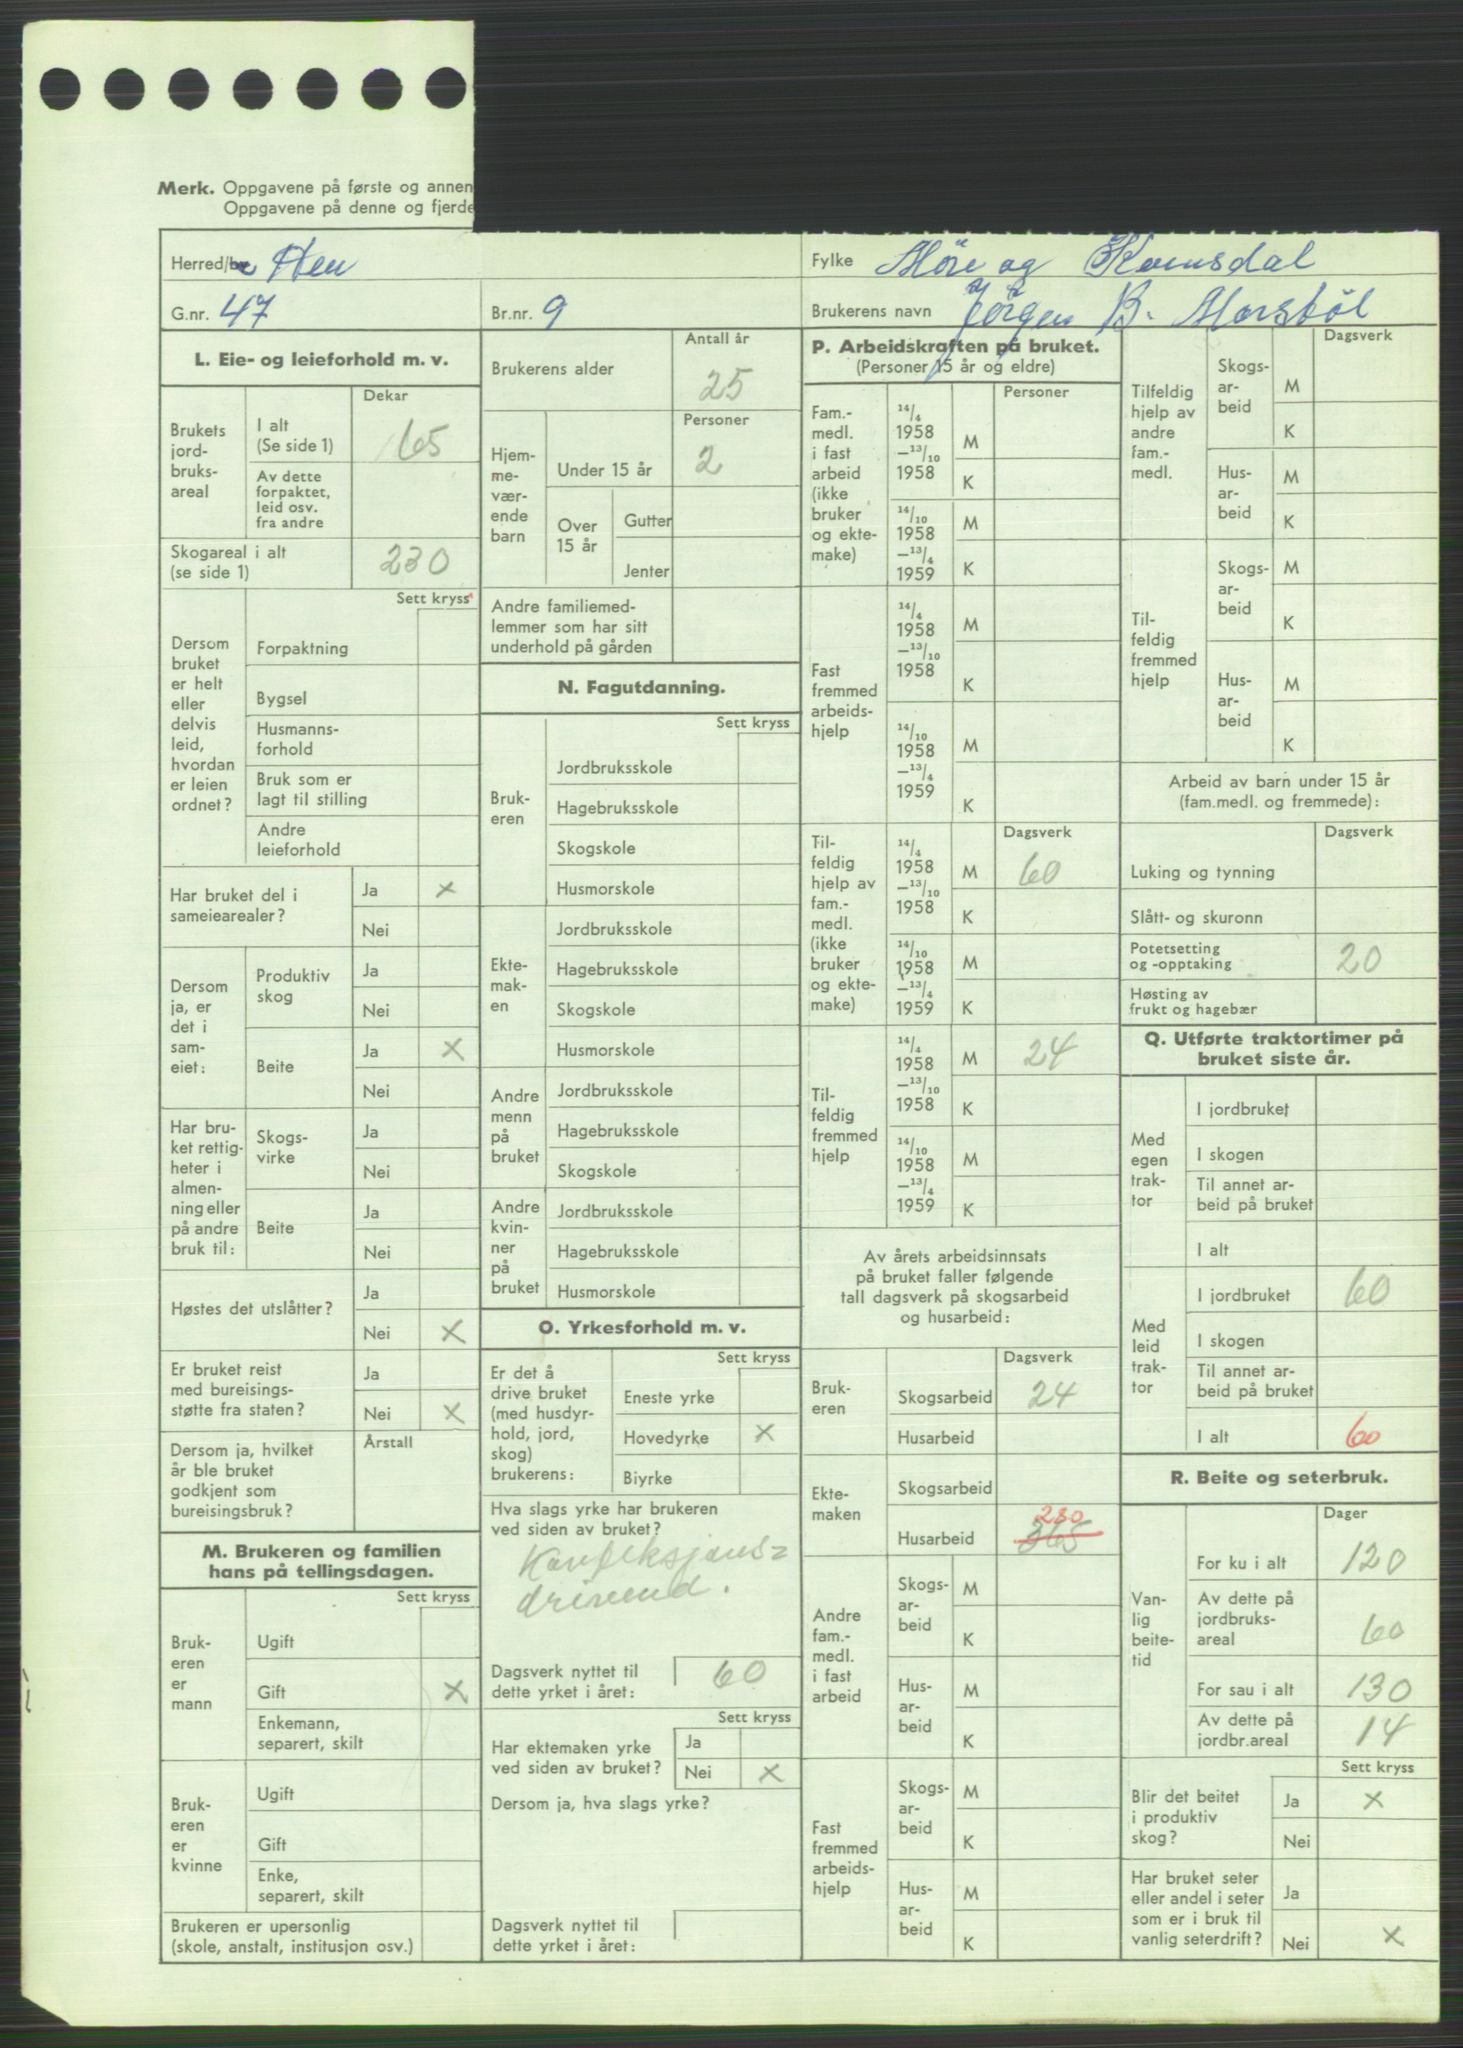 Merk. Oppgavene på første og annen
Oppgavene på denne og fjerde
Herred/by Hen
Fylke Møre og Romsdal
G.nr. 47
Br.nr. 9
Brukerens navn Jörgen B.
L. Eie- og leieforhold m. v.
Dekar
Brukets jord-
bruks-
areal
I alt
(Se side 1) 65
Av dette
forpaktet,
leid osv.
fra andre
Skogareal i alt
(se side 1) 230
Sett kryss
Dersom
bruket
er helt
eller
delvis
leid,
hvordan
er leien
ordnet?
Forpaktning
Bygsel
Husmanns-
forhold
Bruk som er
lagt til stilling
Andre
leieforhold
Har bruket del i
sameiearealer?
Ja x
Nei
Dersom
ja, er
det i
sam-
eiet:
Produktiv
skog
Ja
Nei
Beite
Ja x
Nei
Har bru-
ket rettig-
heter i
almen-
ning eller
på andre
bruk til:
Skogs-
virke
Ja
Nei
Beite
Ja
Nei
Høstes det utslåtter?
Ja
Nei x
Er bruket reist
med bureisings-
støtte fra staten?
Ja
Nei x
Dersom ja, hvilket
år ble bruket
godkjent som
bureisingsbruk?
Årstall
M. Brukeren og familien
hans på tellingsdagen.
Sett kryss
Bruk-
eren
er
mann
Ugift
Gift x
Enkemann,
separert, skilt
Bruk-
eren
er
kvinne
Ugift
Gift
Enke,
separert, skilt
Brukeren er upersonlig
(skole, anstalt, institusjon osv.)
Antall år
Brukerens alder 25
Personer
Hjem-
me-
vær-
ende
barn
Under 15 år 2
Over
15 år
Gutter
Jenter
Andre familiemed-
lemmer som har sitt
underhold på gården
N. Fagutdanning.
Sett kryss
Bruk-
eren
Jordbruksskole
Hagebruksskole
Skogskole
Husmorskole
Ekte-
mak-
en
Jordbruksskole
Hagebruksskole
Skogskole
Husmorskole
Andre
menn
på
bruket
Jordbruksskole
Hagebruksskole
Skogskole
Andre
kvin-
ner
på
bruket
Jordbruksskole
Hagebruksskole
Husmorskole
O. Yrkesforhold m. v.
Sett kryss
Er det å
drive bruket
(med husdyr-
hold, jord,
skog)
brukerens:
Eneste yrke
Hovedyrke x
Biyrke
Hva slags yrke har brukeren
ved siden av bruket?
Konfeksjons=
drivend.
Dagsverk nyttet til
dette yrket i året: 60
Sett kryss
Har ektemaken yrke
ved siden av bruket?
Ja
Nei x
Dersom ja, hva slags yrke?
Dagsverk nyttet til
dette yrket i året:
P. Arbeidskraften på bruket.
(Personer 15 år og eldre)
Personer
Fam.-
medl.
i fast
arbeid
(ikke
bruker
og ekte-
make)
14/4
1958
–13/10
1958
M
K
14/10
1958
–13/4
1959
M
K
Fast
fremmed
arbeids-
hjelp
14/4
1958
–13/10
1958
M
K
14/10
1958
–13/4
1959
M
K
Dagsverk
Til-
feldig
hjelp av
fam.-
medl.
(ikke
bruker
og ekte-
make)
14/4
1958
–13/10
1958
M 60
K
14/10
1958
–13/4
1959
M
K
Til-
feldig
fremmed
hjelp
14/4
1958
–13/10
1958
M 24
K
14/10
1958
–13/4
1959
M
K
Av årets arbeidsinnsats
på bruket faller følgende
tall dagsverk på skogsarbeid
og husarbeid:
Dagsverk
Bruk-
eren
Skogsarbeid 24
Husarbeid
Ekte-
maken
Skogsarbeid
230
Husarbeid 365
Andre
fam.-
medl.
i fast
arbeid
Skogs-
ar-
beid
M
K
Hus-
ar-
beid
M
K
Fast
fremmed
arbeids-
hjelp
Skogs-
ar-
beid
M
K
Hus-
ar-
beid
M
K
Dagsverk
Tilfeldig
hjelp av
andre
fam.-
medl.
Skogs-
ar-
beid
M
K
Hus-
ar-
beid
M
K
Til-
feldig
fremmed
hjelp
Skogs-
ar-
beid
M
K
Hus-
ar-
beid
M
K
Arbeid av barn under 15 år
(fam.medl. og fremmede):
Dagsverk
Luking og tynning
Slått- og skuronn
Potetsetting
og -opptaking 20
Høsting av
frukt og hagebær
Q. Utførte traktortimer på
bruket siste år.
Med
egen
trak-
tor
I jordbruket
I skogen
Til annet ar-
beid på bruket
I alt
Med
leid
trak-
tor
I jordbruket 60
I skogen
Til annet ar-
beid på bruket
I alt 60
R. Beite og seterbruk.
Dager
Van-
lig
beite-
tid
For ku i alt 120
Av dette på
jordbruks-
areal 60
For sau i alt 130
Av dette på
jordbr.areal 14
Sett kryss
Blir det beitet
i produktiv
skog?
Ja x
Nei
Har bruket seter
eller andel i seter
som er i bruk til
vanlig seterdrift?
Ja
Nei x